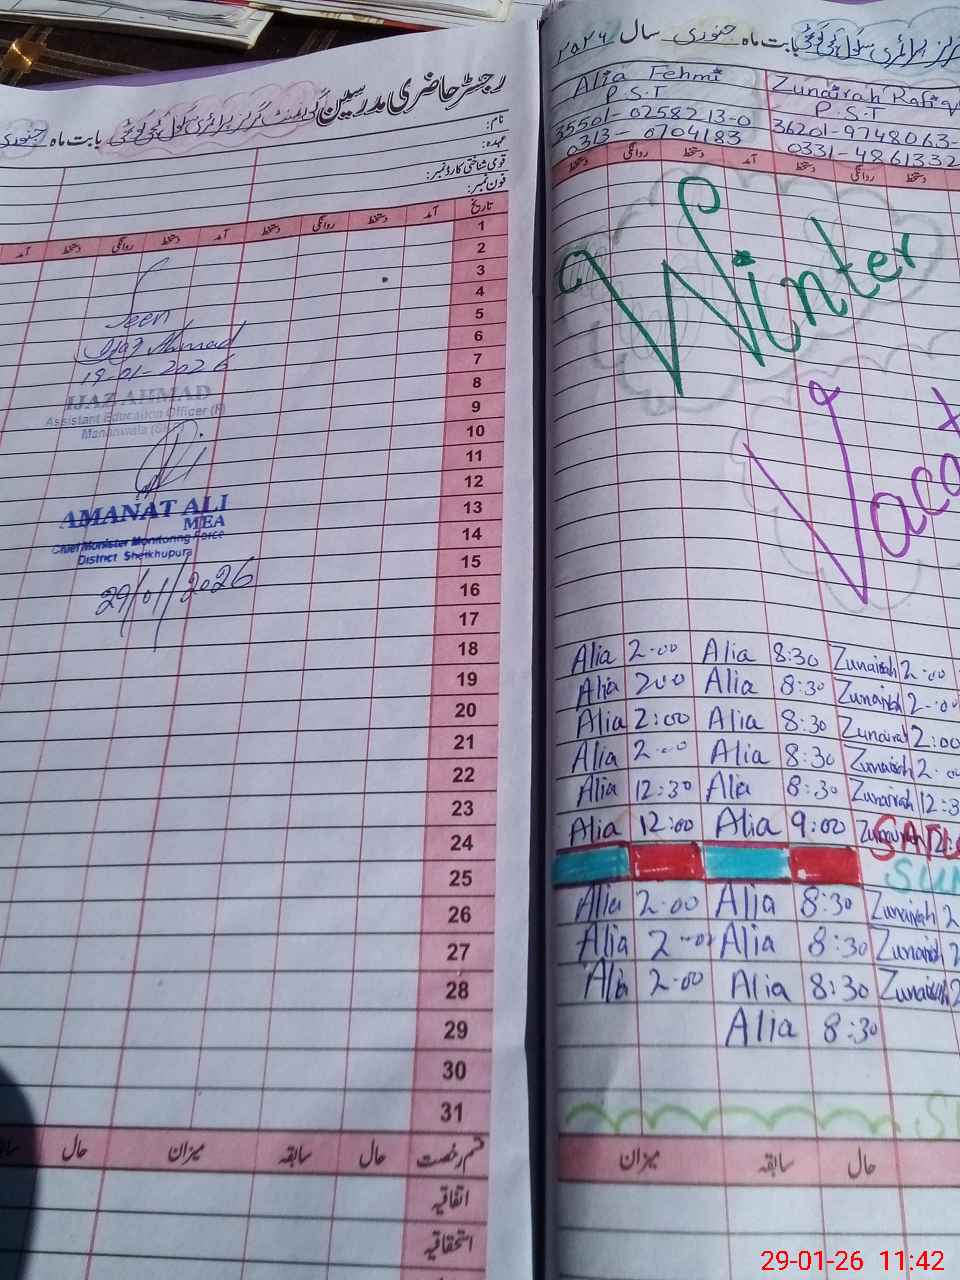 رجسٹر حاضری مدرسین گورنمنٹ گرلز پرائمری سکول
بابت ماہ جنوری
نام:
عہدہ:
قومی شناختی کارڈ نمبر:
فون نمبر:
تاریخ آمد دستخط روانگی دستخط آمد دستخط روانگی دستخط آمد
1
2
3
4
5
6
7
8
9
10
11
12
13
14
15
16
17
18
19
20
21
22
23
24
25
26
27
28
29
30
31
Seen
Ijaz Ahmad
19-01-2026
IJAZ AHMAD
Assistant Education Officer
Mananwala
AMANAT ALI
MEA
Chief Minister Monitoring Force
District Sheikhupura
29/01/2026
قسم رخصت حال سابقہ میزان حال
اتفاقیہ
استحقاقیہ
گرلز پرائمری سکول بابت ماہ جنوری سال ۲۰۲۶
Alia Fehmi
P.S.T
35501-0258213-0
0313-0704183
Zunairah Rafiq
P.S.T
36201-9748063-
0331-4861332
دستخط روانگی دستخط آمد دستخط روانگی دستخط
Winter
Vaca
Alia 2:00 Alia 8:30 Zunairah 2:00
Alia 2:00 Alia 8:30 Zunairah 2:00
Alia 2:00 Alia 8:30 Zunairah 2:00
Alia 2:00 Alia 8:30 Zunairah 2:00
Alia 12:30 Alia 8:30 Zunairah 12:3
Alia 12:00 Alia 9:00 Zunairah
SUN
Alia 2:00 Alia 8:30 Zunairah 2
Alia 2:00 Alia 8:30 Zunairah 2
Alia 2:00 Alia 8:30 Zunairah 2
Alia 8:30
میزان سابقہ حال
29-01-26 11:42